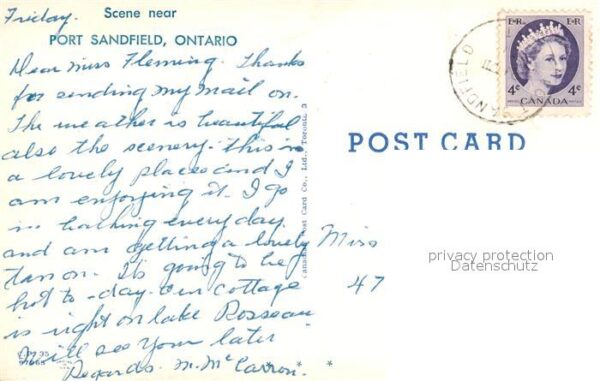 Friday.
Scene near
PORT SANDFIELD, ONTARIO
Dear Miss Fleming. Thanks
for sending my mail on.
The weather is beautiful
also the scenery. This is
a lovely place and I
am enjoying it. I go
in bathing every day
and am getting a lovely
tan on. It's going to be
hot to-day. Our cottage
is right on lake Rosseau
Will see you later
Regards. M. McCarron.
Canadian Post Card Co., Ltd., Toronto 3
SANDFIELD
E II R
E II R
4c
4c
CANADA
POST CARD
Miss
47
privacy protection
Datenschutz